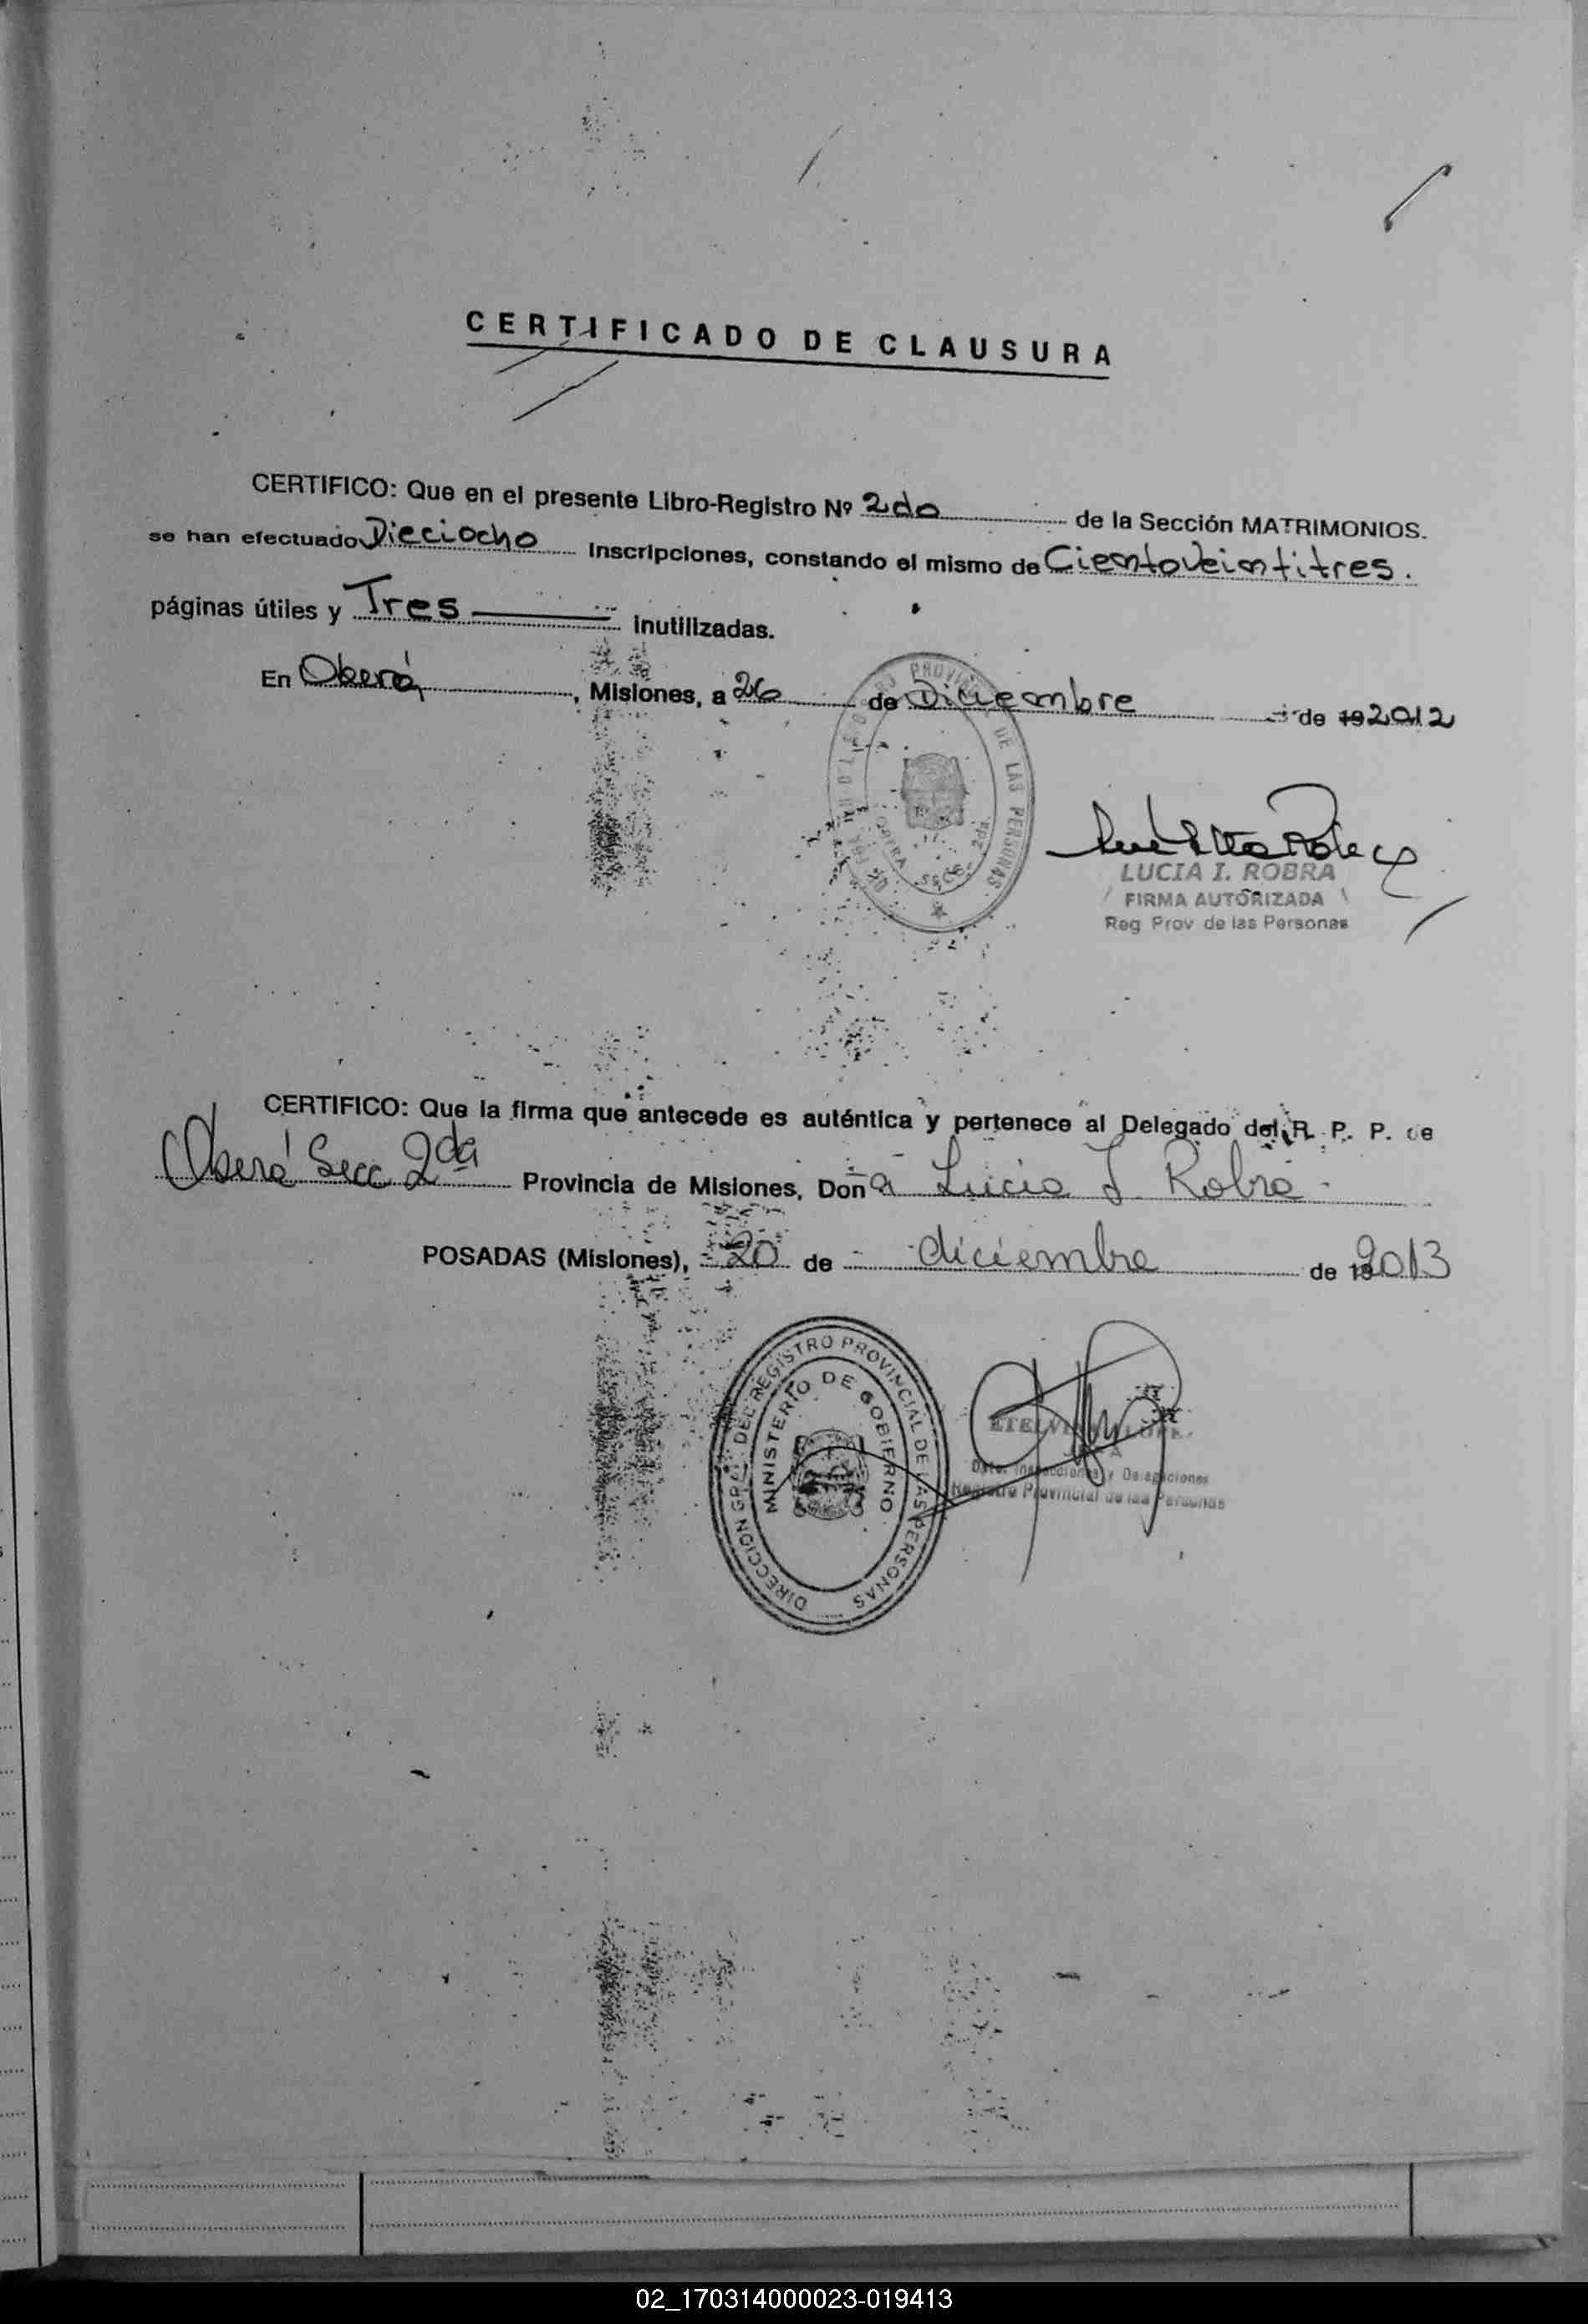 CERTIFICADO DE CLAUSURA
CERTIFICO: Que en el presente Libro-Registro Nº 2do de la Sección MATRIMONIOS.
se han efectuado Dieciocho Inscripciones, constando el mismo de Ciento Veintitres.
páginas útiles y Tres inutilizadas.
En Oberá, Misiones, a 26 de Diciembre de 19 2012
PROVINCIAL DE LAS PERSONAS
SECC. 2da
LUCIA I. ROBRA
FIRMA AUTORIZADA
Reg Prov de las Personas
CERTIFICO: Que la firma que antecede es auténtica y pertenece al Delegado del R. P. P. de
Oberá Secc 2da Provincia de Misiones, Doña Lucia I Robra.
POSADAS (Misiones), 20 de diciembre de 19 2013
DIRECCION GRAL. DEL REGISTRO PROVINCIAL DE LAS PERSONAS
MINISTERIO DE GOBIERNO
JEFA
Dpto. Inspecciones y Delegaciones
Registro Provincial de las Personas
02_170314000023-019413